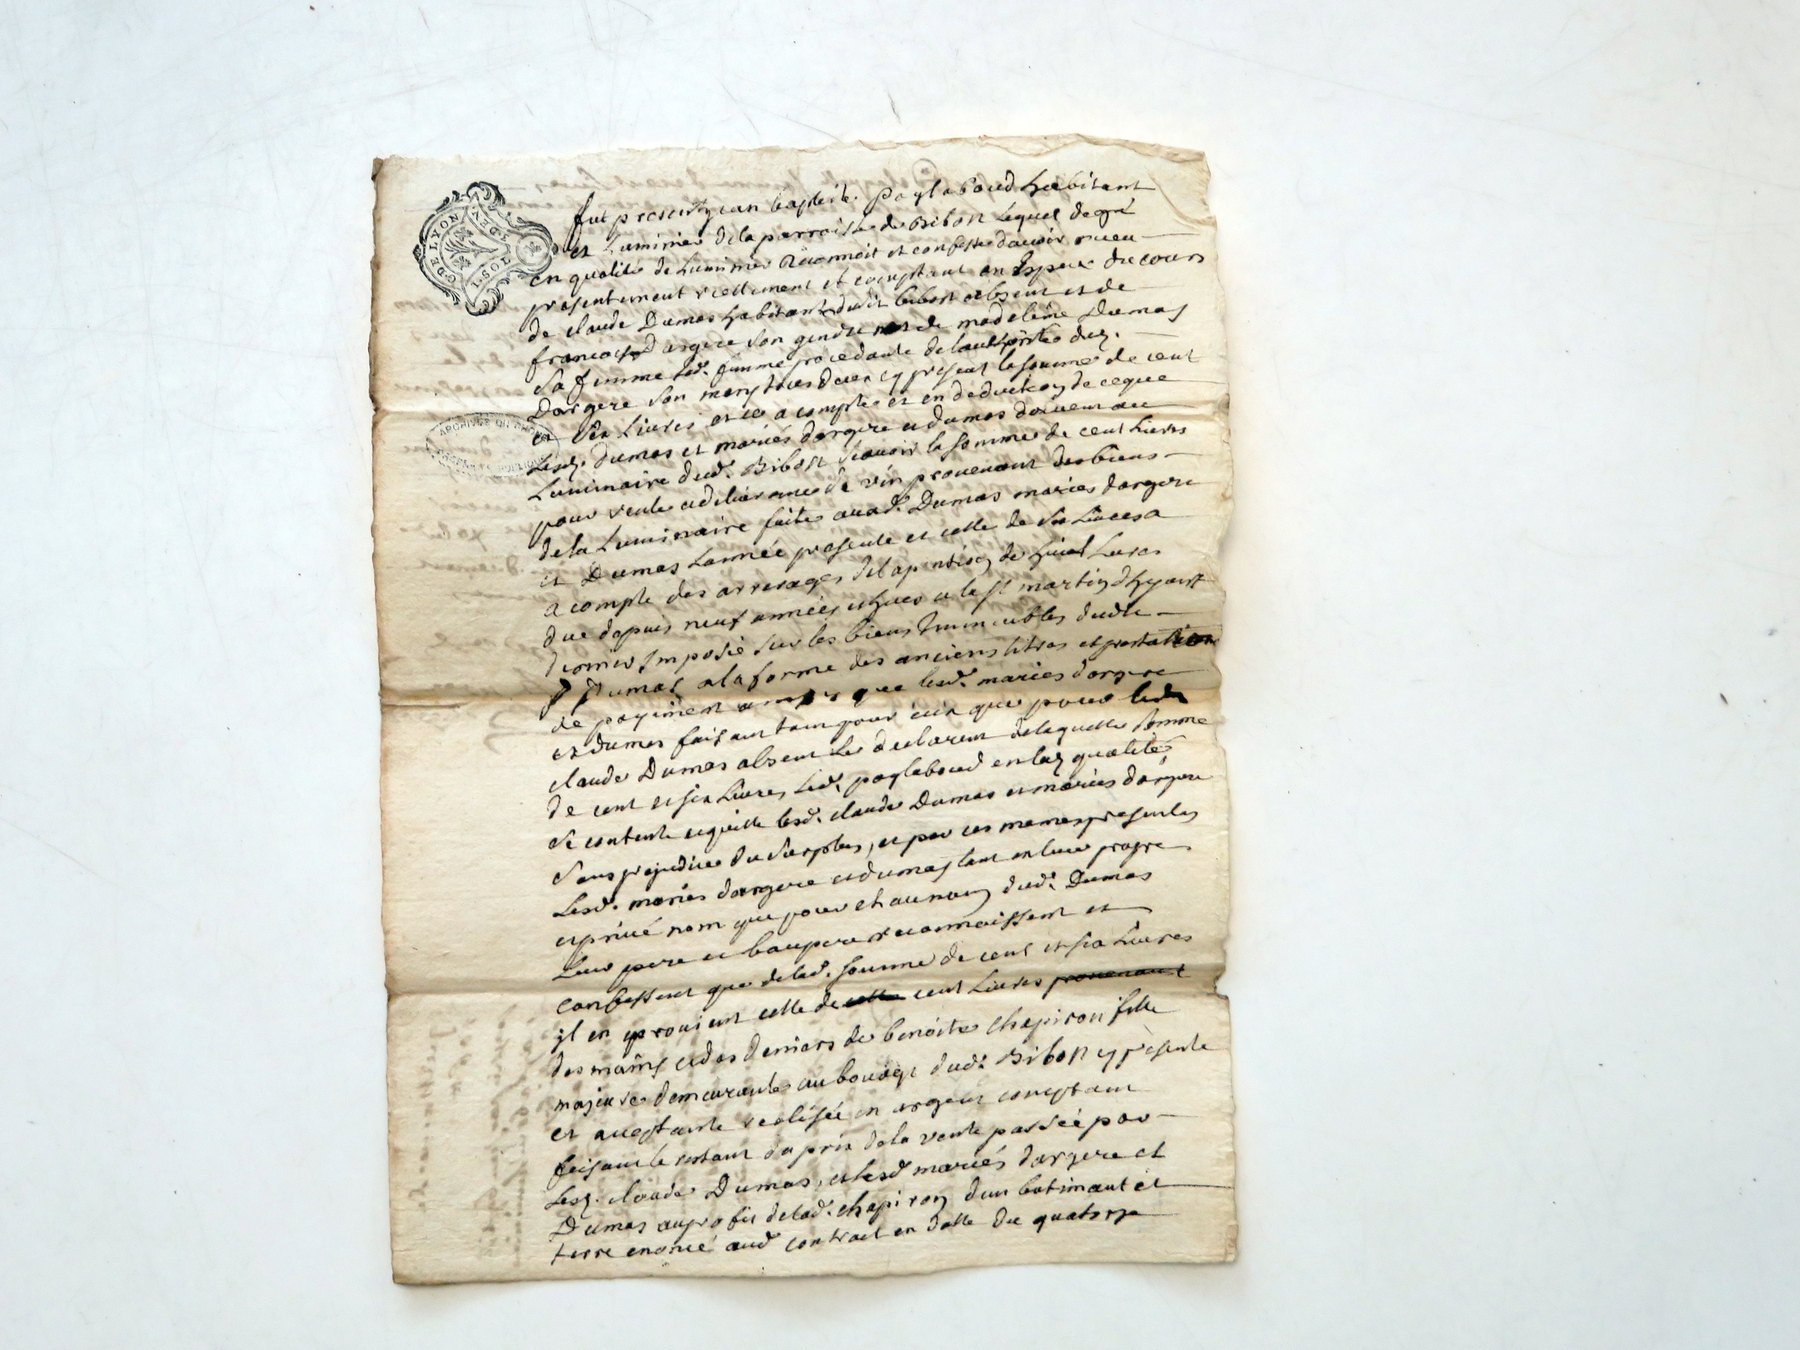 G DE LYON
1. SOL
ARCHIVES DU
fut present jean baptiste paglaboud habitant
et Luminier de la parroise de Bibost Lequel de gré
en qualité de Luminier Reconnoit et confesse davoir receu
presentement réellement et comptant en Espece du cours
de claude Dumas habitant dudit bibost absent et de
francois Dargere Son gendre et de madeleine Dumas
Sa femme lad. femme procedante de lauthorité dud.
Dargere Son mary tous deux cy present la somme de cent
et Six Livres et ce a compte et en deduction de ceque
Lesd. Dumas et mariés dargere et dumas doivent au
Luminaire dud. Bibost scavoir la somme de cent Livres
pour vente et delivrance de vin provenant des biens
de la Luminaire faite auxd. Dumas mariés dargere
et Dumas Lannée presente et celle de Six Livres a
a compte des arrerages de la pention de huict Livres
due depuis neuf années echues a la St martin dhyvert
dernier Imposée sur les biens Immeubles dudit
Dumas a la forme des anciens titres et prestation
de payement que lesd. mariés dargere
et dumas faisant tant pour eux que pour led.
claude Dumas absent Le declarent de laquelle somme
de cent et six Livres Led. paglaboud en lad. qualité
se contente et quitte lesd. claude Dumas et mariés dargere
Sans prejudice du Surplus, et par ces memes presentes
Lesd. mariés dargere et dumas tant en leur propre
et privé nom que pour et au nom dud. Dumas
Leur pere et beaupere reconnoissent et
confessent que de lad. somme de cent et six Livres
il en provient celle de celle cent Livres provenant
des mains et des deniers de benoite chapiron fille
majeure demeurante au bourg dud. Bibost cy presente
et acceptante realisée en argent comptant
faisant le restant du prix de la vente passée par
Lesd. claude Dumas, et lesd. mariés dargere et
Dumas au profit de lad. chapiron dun batimant et
terre enoncé aud. contract en datte du quatorze